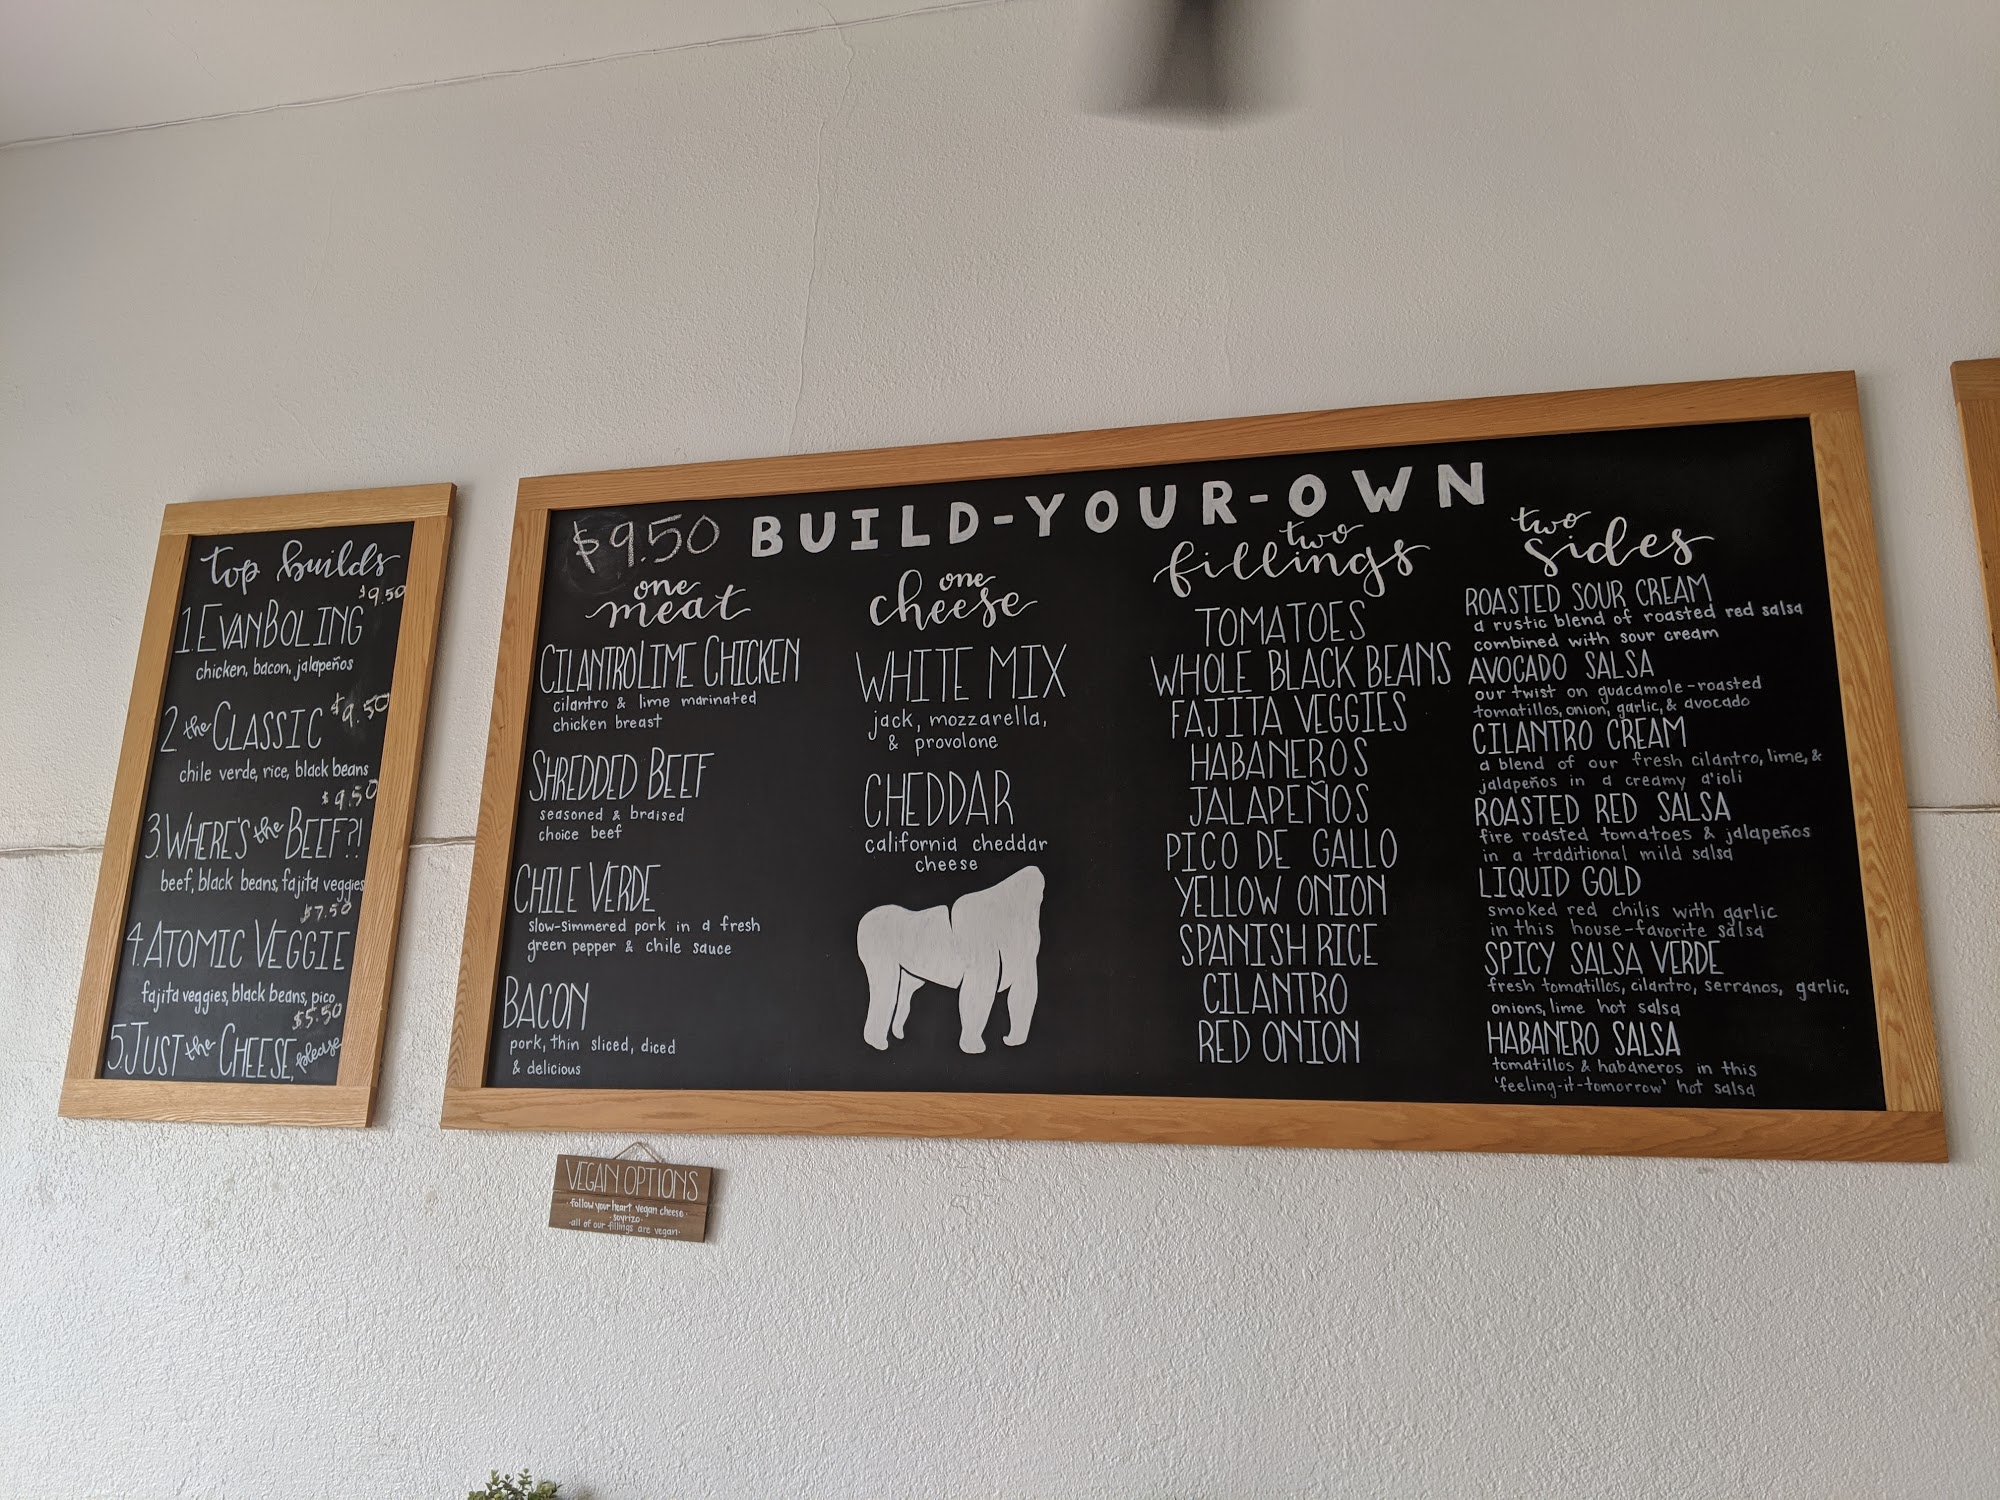 top builds
$9.50
1. EVANBOLING
chicken, bacon, jalapeños
$9.50
2. the CLASSIC
chile verde, rice, black beans
$9.50
3. WHERE'S the BEEF?!
beef, black beans, fajita veggies
$7.50
4. ATOMIC VEGGIE
fajita veggies, black beans, pico
$5.50
5. JUST the CHEESE, please
$9.50 BUILD-YOUR-OWN
one
meat
CILANTRO LIME CHICKEN
cilantro & lime marinated
chicken breast
SHREDDED BEEF
seasoned & braised
choice beef
CHILE VERDE
slow-simmered pork in a fresh
green pepper & chile sauce
BACON
pork, thin sliced, diced
& delicious
one
cheese
WHITE MIX
jack, mozzarella,
& provolone
CHEDDAR
california cheddar
cheese
two
fillings
TOMATOES
WHOLE BLACK BEANS
FAJITA VEGGIES
HABANEROS
JALAPEÑOS
PICO DE GALLO
YELLOW ONION
SPANISH RICE
CILANTRO
RED ONION
two
sides
ROASTED SOUR CREAM
a rustic blend of roasted red salsa
combined with sour cream
AVOCADO SALSA
our twist on guacamole-roasted
tomatillos, onion, garlic, & avocado
CILANTRO CREAM
a blend of our fresh cilantro, lime, &
jalapeños in a creamy a'ioli
ROASTED RED SALSA
fire roasted tomatoes & jalapeños
in a traditional mild salsa
LIQUID GOLD
smoked red chilis with garlic
in this house-favorite salsa
SPICY SALSA VERDE
fresh tomatillos, cilantro, serranos, garlic,
onions, lime hot salsa
HABANERO SALSA
tomatillos & habaneros in this
'feeling-it-tomorrow' hot salsa
VEGAN OPTIONS
· follow your heart vegan cheese ·
· soyrizo ·
· all of our fillings are vegan ·